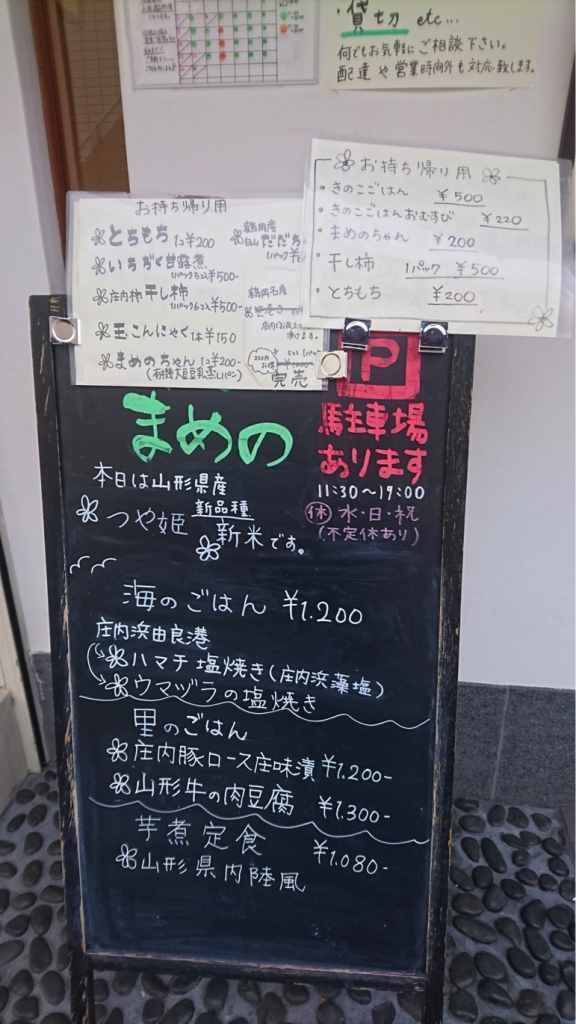 貸切 etc...
何でもお気軽にご相談下さい。
配達や営業時間外も対応致します。
お持ち帰り用
とちもち 1コ¥200
いちぢく甘露煮
1パック5コ¥500-
庄内柿干し柿
1パック6コ入¥500-
玉こんにゃく 1本¥150
まめのちゃん 1コ¥200-
(有機大豆豆乳蒸しパン)
鶴岡産
白山だだち
1パック¥6
鶴岡名産
完売
お持ち帰り用
・きのこごはん ¥500
・きのこごはんおむすび ¥220
・まめのちゃん ¥200
・干し柿 1パック ¥500
・とちもち ¥200
P
駐車場
あります
11:30〜19:00
休 水・日・祝
(不定休あり)
まめの
本日は山形県産
新品種
つや姫 新米です。
海のごはん ¥1.200
庄内浜由良港
ハマチ塩焼き(庄内浜藻塩)
ウマヅラの塩焼き
里のごはん
庄内豚ロース庄味漬 ¥1.200-
山形牛の肉豆腐 ¥1.300-
芋煮定食 ¥1.080-
山形県内陸風